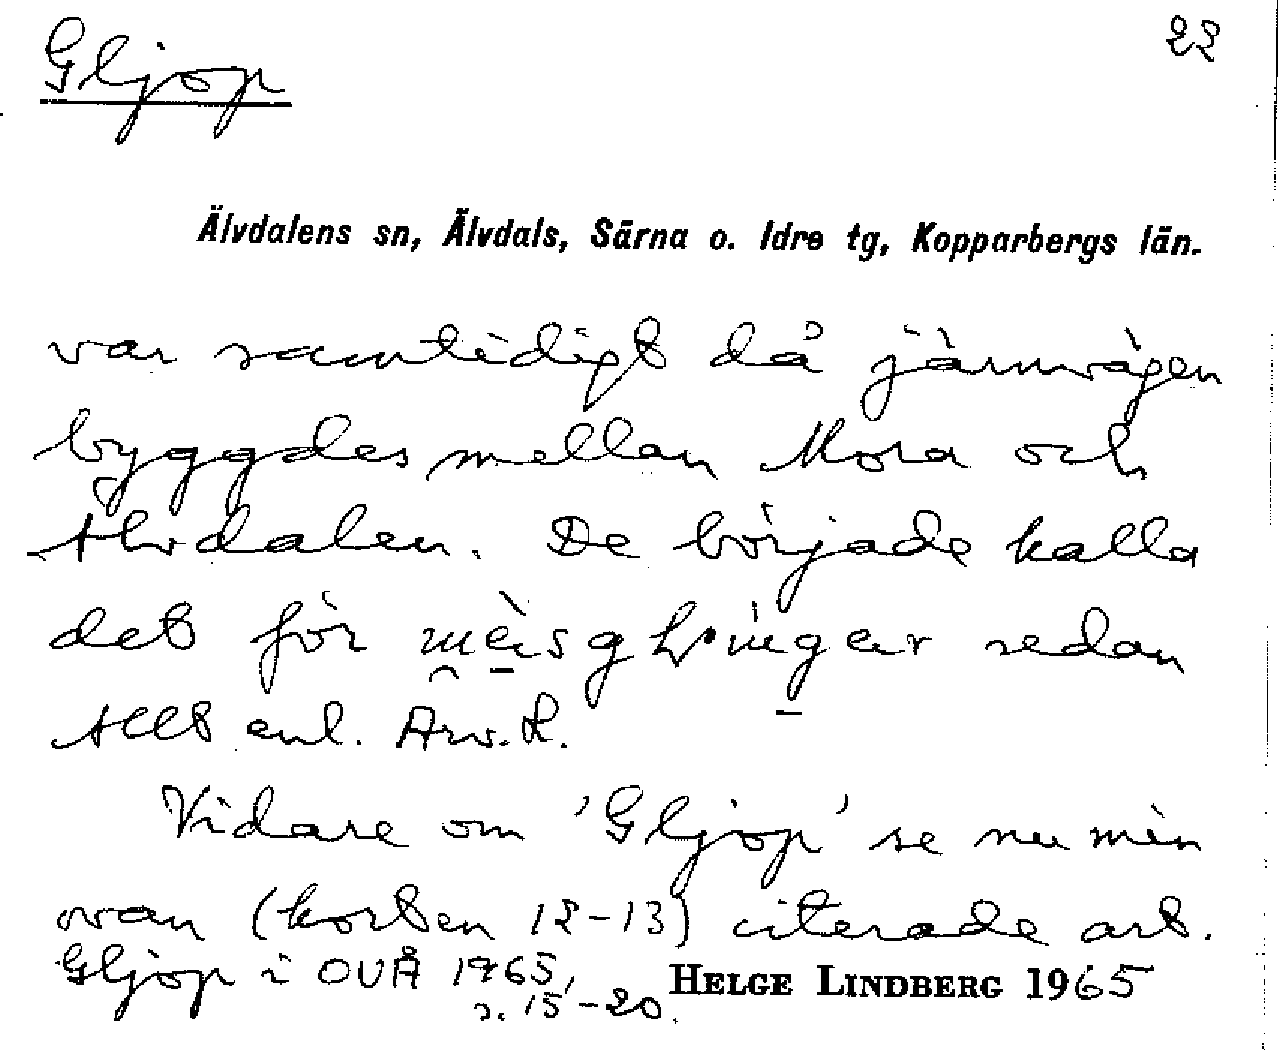 Gljop
22
Älvdalens sn, Älvdals, Särna o. Idre tg, Kopparbergs län.
var samtidigt då järnvägen
byggdes mellan Mora och
Älvdalen. De började kalla
det för sedan
allt enl. Arv. L.
Vidare om 'Gljop' se nu min
ovan (korten 12-13) citerade art.
Gljop i OUÅ 1965,
s. 15-20.
HELGE LINDBERG 1965